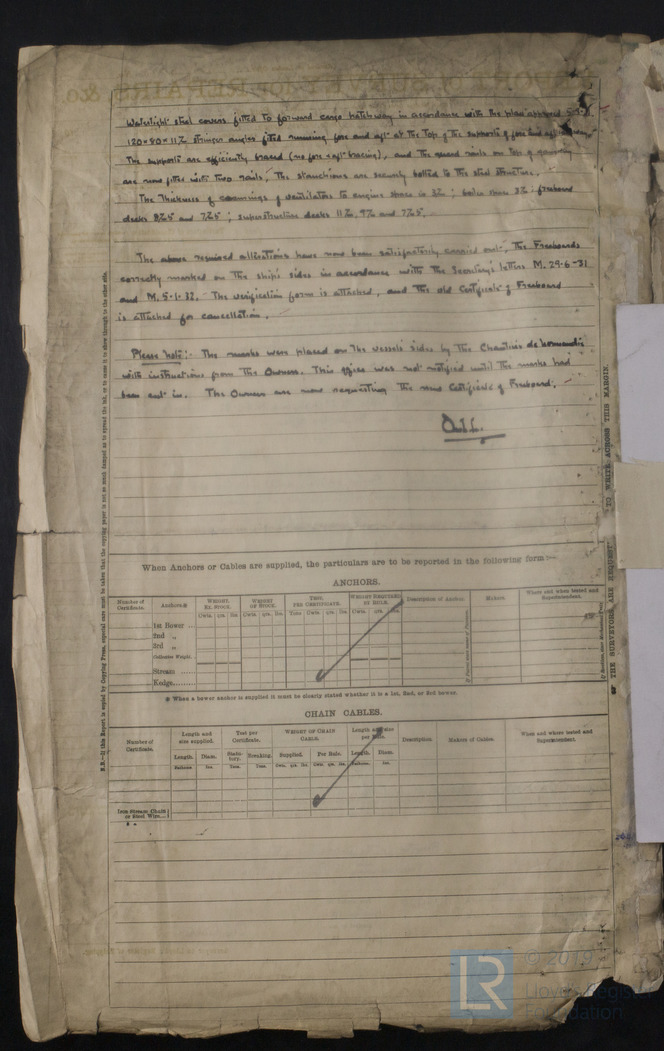 Watertight steel covers fitted to forward cargo hatchway in accordance with the plan approved
120 × 80 × 11 % stringer angles fitted running fore and aft at the top of the supports of fore and aft
The supports are efficiently braced (no fore & aft bracing), and the guard rails on top of gangway
are now fitted with two rails, The stanchions are securely bolted to the steel structure.
The thickness of coamings of ventilators to engine space is
decks 8,25 and 7,25 ; superstructure decks
The above required alterations have now been satisfactorily carried out, the Freeboards
correctly marked on the ship's sides in accordance with the Secretary's letters M. 29-6-31
and M. 5.1.32. The verification form is attached, and the old Certificate of Freeboard
is attached for cancellation.
Please note:- The marks were placed on the vessels sides by the Chantiers de Normandie
with instructions from the Owners. This office was not notified until the marks had
been cut in. The Owners are now requesting the new Certificate of Freeboard.
When Anchors or Cables are supplied, the particulars are to be reported in the following form
ANCHORS.
Number of Certificate. Anchors WEIGHT, EX. STOCK. WEIGHT OF STOCK. TEST, PER CERTIFICATE. WEIGHT REQUIRED BY RULE. Description of Anchor. Makers. Where and when tested and Superintendent.
Cwts. qrs. lbs. Cwts. qrs. lbs. Tons Cwts. qrs. lbs. Cwts. qrs. lbs.
1st Bower ...
2nd „
3rd „
Collective Weight.
Stream
Kedge
When a bower anchor is supplied it must be clearly stated whether it is a 1st, 2nd, or 3rd bower.
CHAIN CABLES.
Number of Certificate. Length and size supplied. Test per Certificate. WEIGHT OF CHAIN CABLE. Length and size per Rule. Description. Makers of Cables. When and where tested and Superintendent.
Length. Diam. Statutory. Breaking. Supplied. Per Rule. Length. Diam.
Fathoms. Ins. Tons. Tons. Cwts. qrs. lbs. Cwts. qrs. lbs. Fathoms. Ins.
Iron Stream Chain
or Steel Wire
TO WRITE ACROSS THIS MARGIN.
THE SURVEYORS ARE REQUESTED
LR
© 2019
Lloyd's Register
Foundation